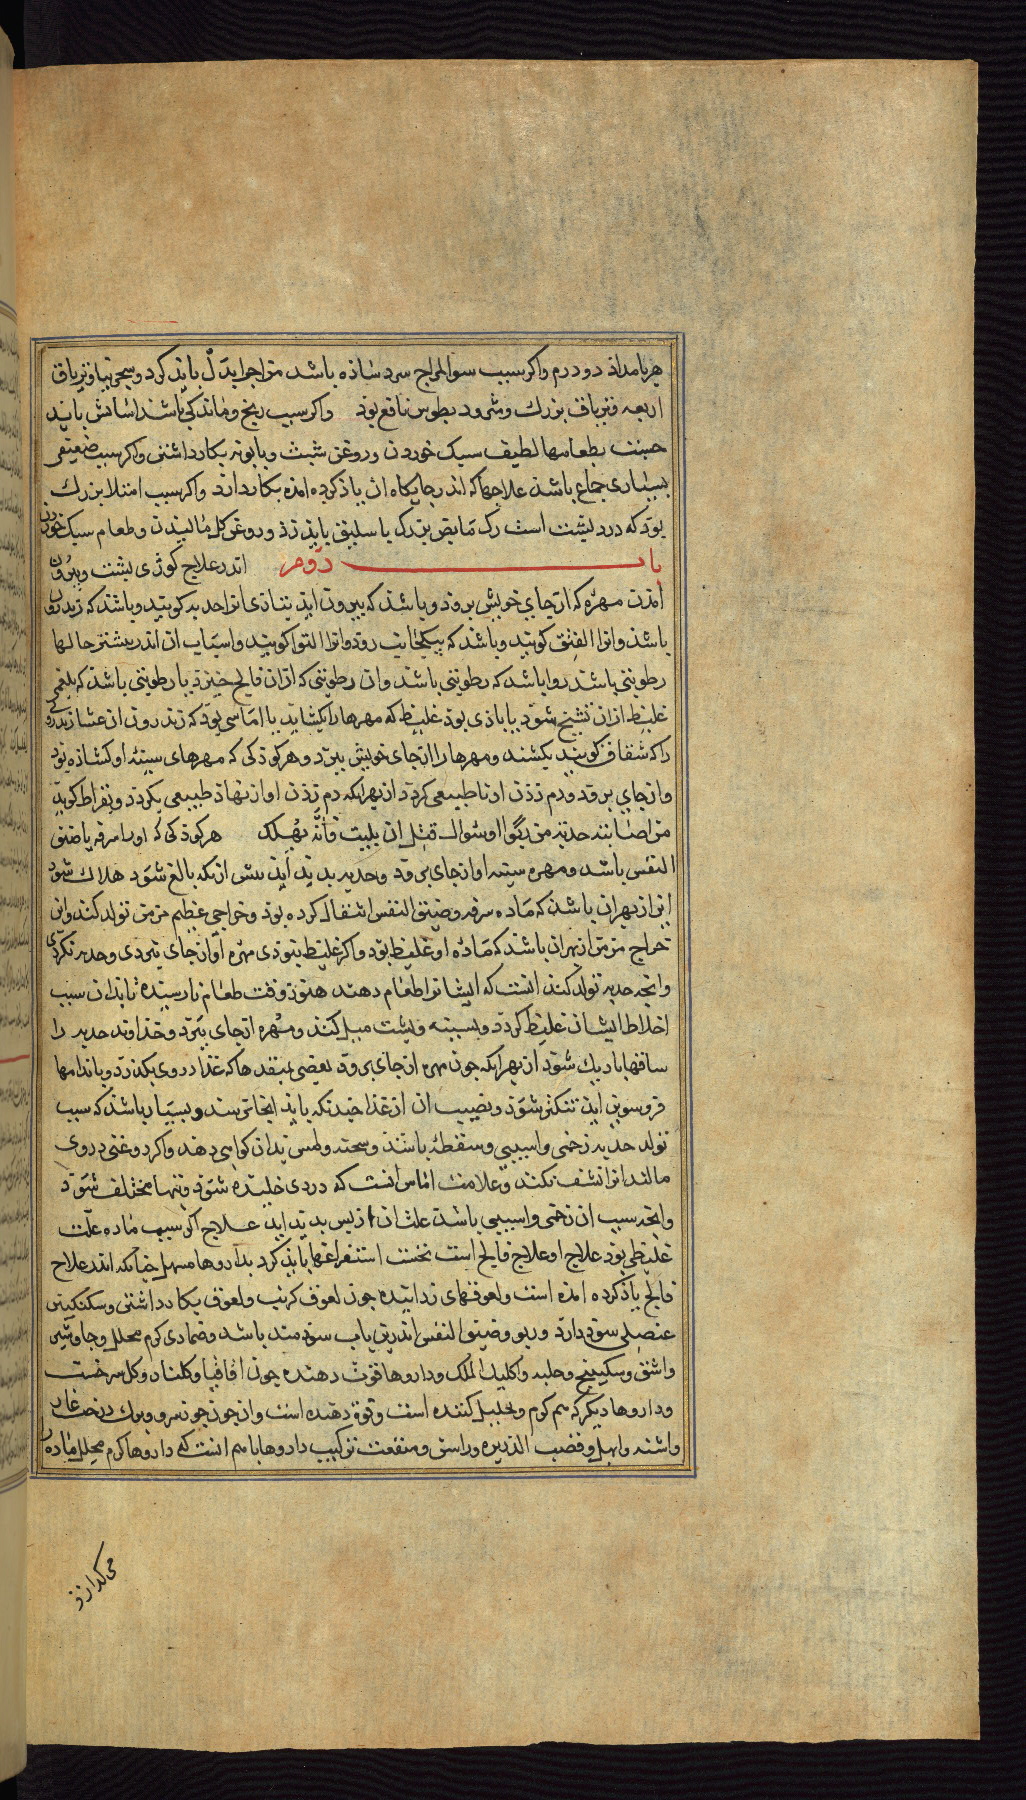 هر بامداد دو درم و اکر سبب سوالمزاج سرد ساده باشد مزاج را بدل باید کرد و سجزنیا و تریاق
اربعه و تریاق بزرك و مثرودیطوس نافع بود واکر سبب رنج و ماندکی باشد اسانش باید
جست بطعامها لطیف سبک خوردن و روغن شبث و بابونه بکار داشتن و اکر سبب ضعیفی
بسیاری جماع باشد علاجها که اندر جایکاه ان یاذ کرده امده بکار دارند واکر سبب امتلا بزرك
بود که در رک پشت است رک مابض بزرک یا باسلیق باید زذ و روغن کل مالیدن و طعام سبک خوردن
باب دوم اندر علاج کوژی پشت و بیرون
امذن مهره که از جای خویش برود و باشد که بیرون اید بتازی انرا حدبه کویند و باشد که زی درون
باشد وانرا الفتق کویند و باشد که بیکجانب رود وانرا التوا کویند و اسباب ان اندر بیشتر حالها
رطوبتی باشد روا باشد که رطوبتی باشد وان رطوبتی که ازان فالج خیزد یا رطوبتی باشد که بلغمی
غلیظ ازان تشنج شود یا باذی بود غلیظ که مهرها را بکشاید یا اماسی بود که زندرون ان عشا زند
را که شقاف کویند بکشند و مهرها را از جای خویش ببرد و هر کوذکی که مهرهای سینهٔ او کشاذه بود
و از جای برود و دم زذن او نا طبیعی کردد از بهر انکه دم زذن او از نهاد طبیعی بکردد و بقراط کوید
من اصابته حدبة من ربو او سعال قبل ان ینبت فانه یهلک هر کوذکی که او را سرفه یا ضیق
النفس باشد و مهره سینه او از جای برود و حدبه بدید اید پیش ازانکه بالغ شود هلاك شود
این از بهر ان باشد که ماده سرفه و ضیق النفس انتقال کرده بود و خراجی عظیم مزمن تولد کند و این
خراج مزمن از بهر ان باشد که ماده او غلیظ بود و اکر غلیظ نبوذی مهره او از جای نبردی و حدبه نکردی
وانچه حدبه تولد کند انست که ایشانرا طعام دهند هنوز وقت طعام نارسیده تا بدان سبب
اخلاط ایشان غلیظ کردد و بسینه و پشت میل کنند و مهره از جای ببرد و خداوند حدبه را
ساقها باریك شود از بهر انکه چون مهره از جای برود بعضی منفذها که غذا در وی بکذرد و باندامها
فروسوین اید تنکتر شود و نصیب ان از غذا چندانکه باید انجا نرسد و بسیار باشد که سبب
تولد حدبه زخمی و اسیبی و سقطهٔ باشد و سحنه و لمس بدان کواهی دهد و اکر روغنی در وی
مالند انرا نشف نکند و علامت اماس انست که دردی خلیده شود و تبها مختلف شود
وانچه سبب ان زخمی و اسیبی باشد علت ان از پس بدید اید علاج اکر سبب ماده علت
غلیظی بود علاج او علاج فالج است نخست استفراغها باید کرد بداروها مسهل چنانکه اندر علاج
فالج یاذ کرده امده است و لعوقهای زداینده چون لعوق کرنب و لعوق بکار داشتن و سکنکبین
عنصلی سود دارد و ربو و ضیق النفس اندرین باب سودمند باشد و ضمادی کرم محلل و جاوشیر
واشق و سکبینج و حلبه و اکلیل الملک و داروها قوت دهنده چون اقاقیا و کلنار و کل سرخ است
و داروها دیکر که هم کرم و تحلیل کننده است و قوة دهنده است وان چون جوز سرو و برك درخت غار
واشنه وابهل و قصب الذریره و راسن و منفعت ترکیب داروها با هم انست که داروها کرم محلل ماده را
می کدازذ